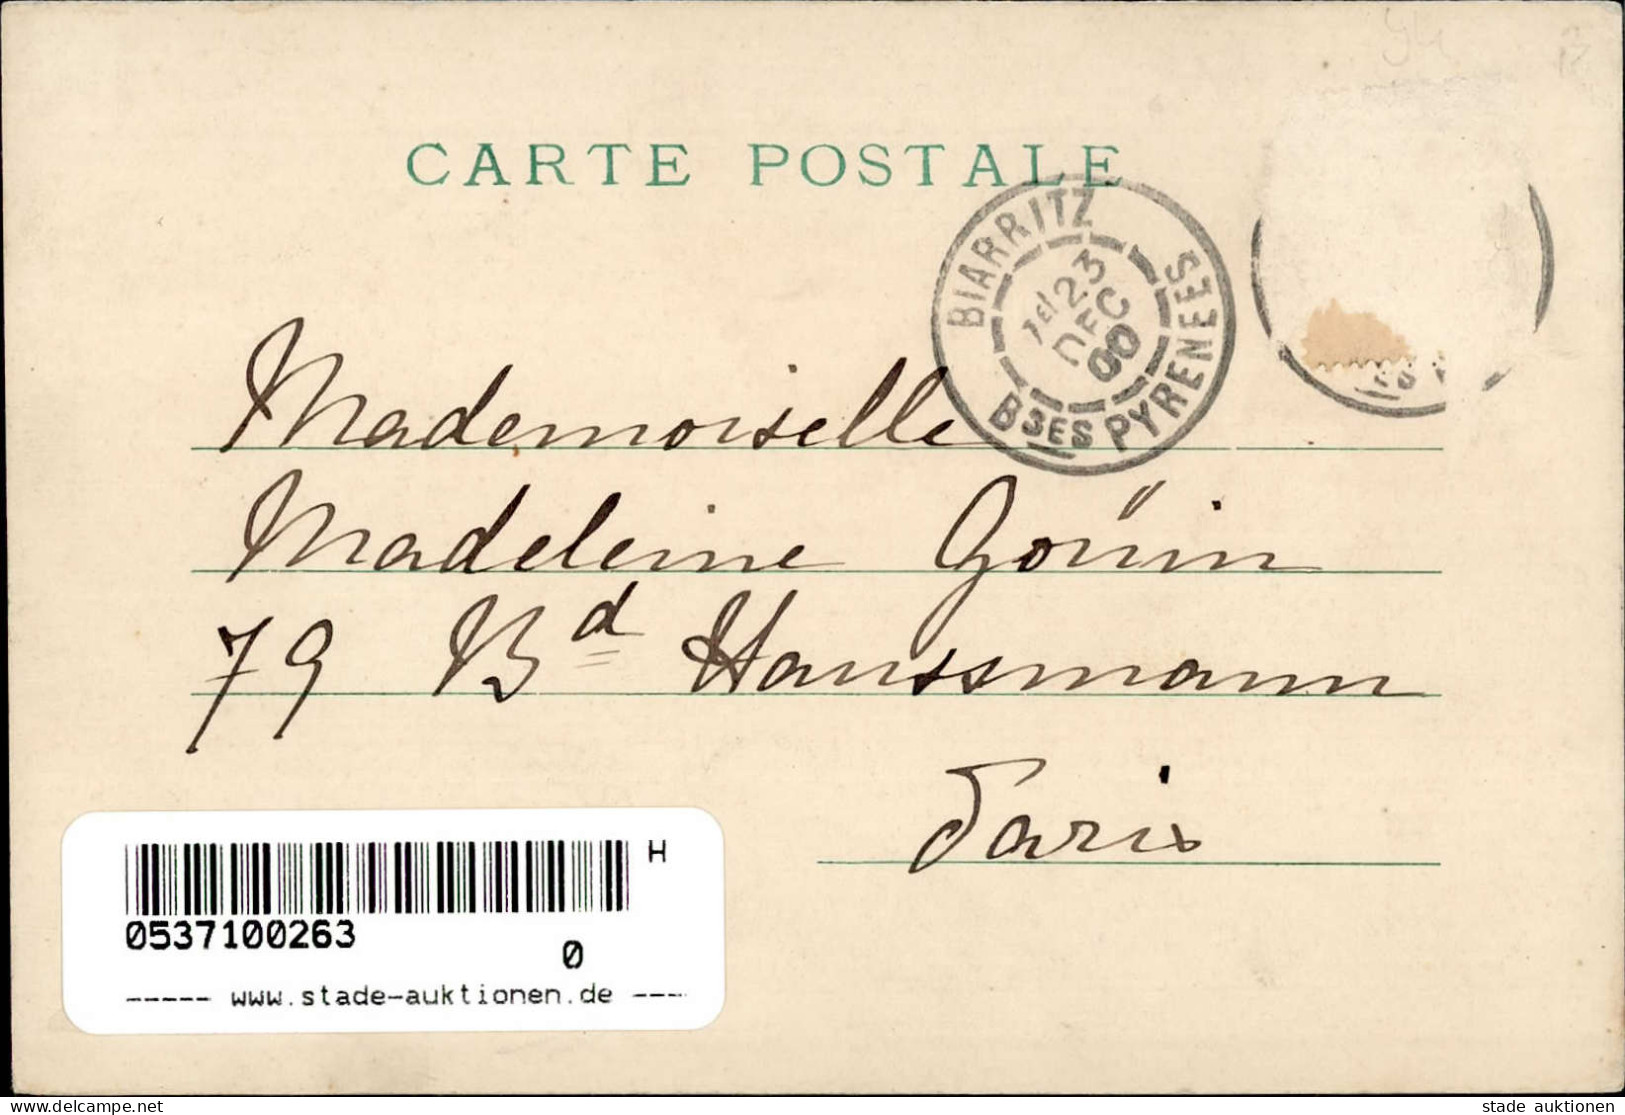 CARTE POSTALE
BIARRITZ
1eᴵ 23
DEC
00
BSES PYRENEES
Mademoiselle
Madeleine Goüin
79 Bd Haussmann
Paris
H
0537100263
0
----- www.stade-auktionen.de ----
www.delcampe.net
stade auktionen